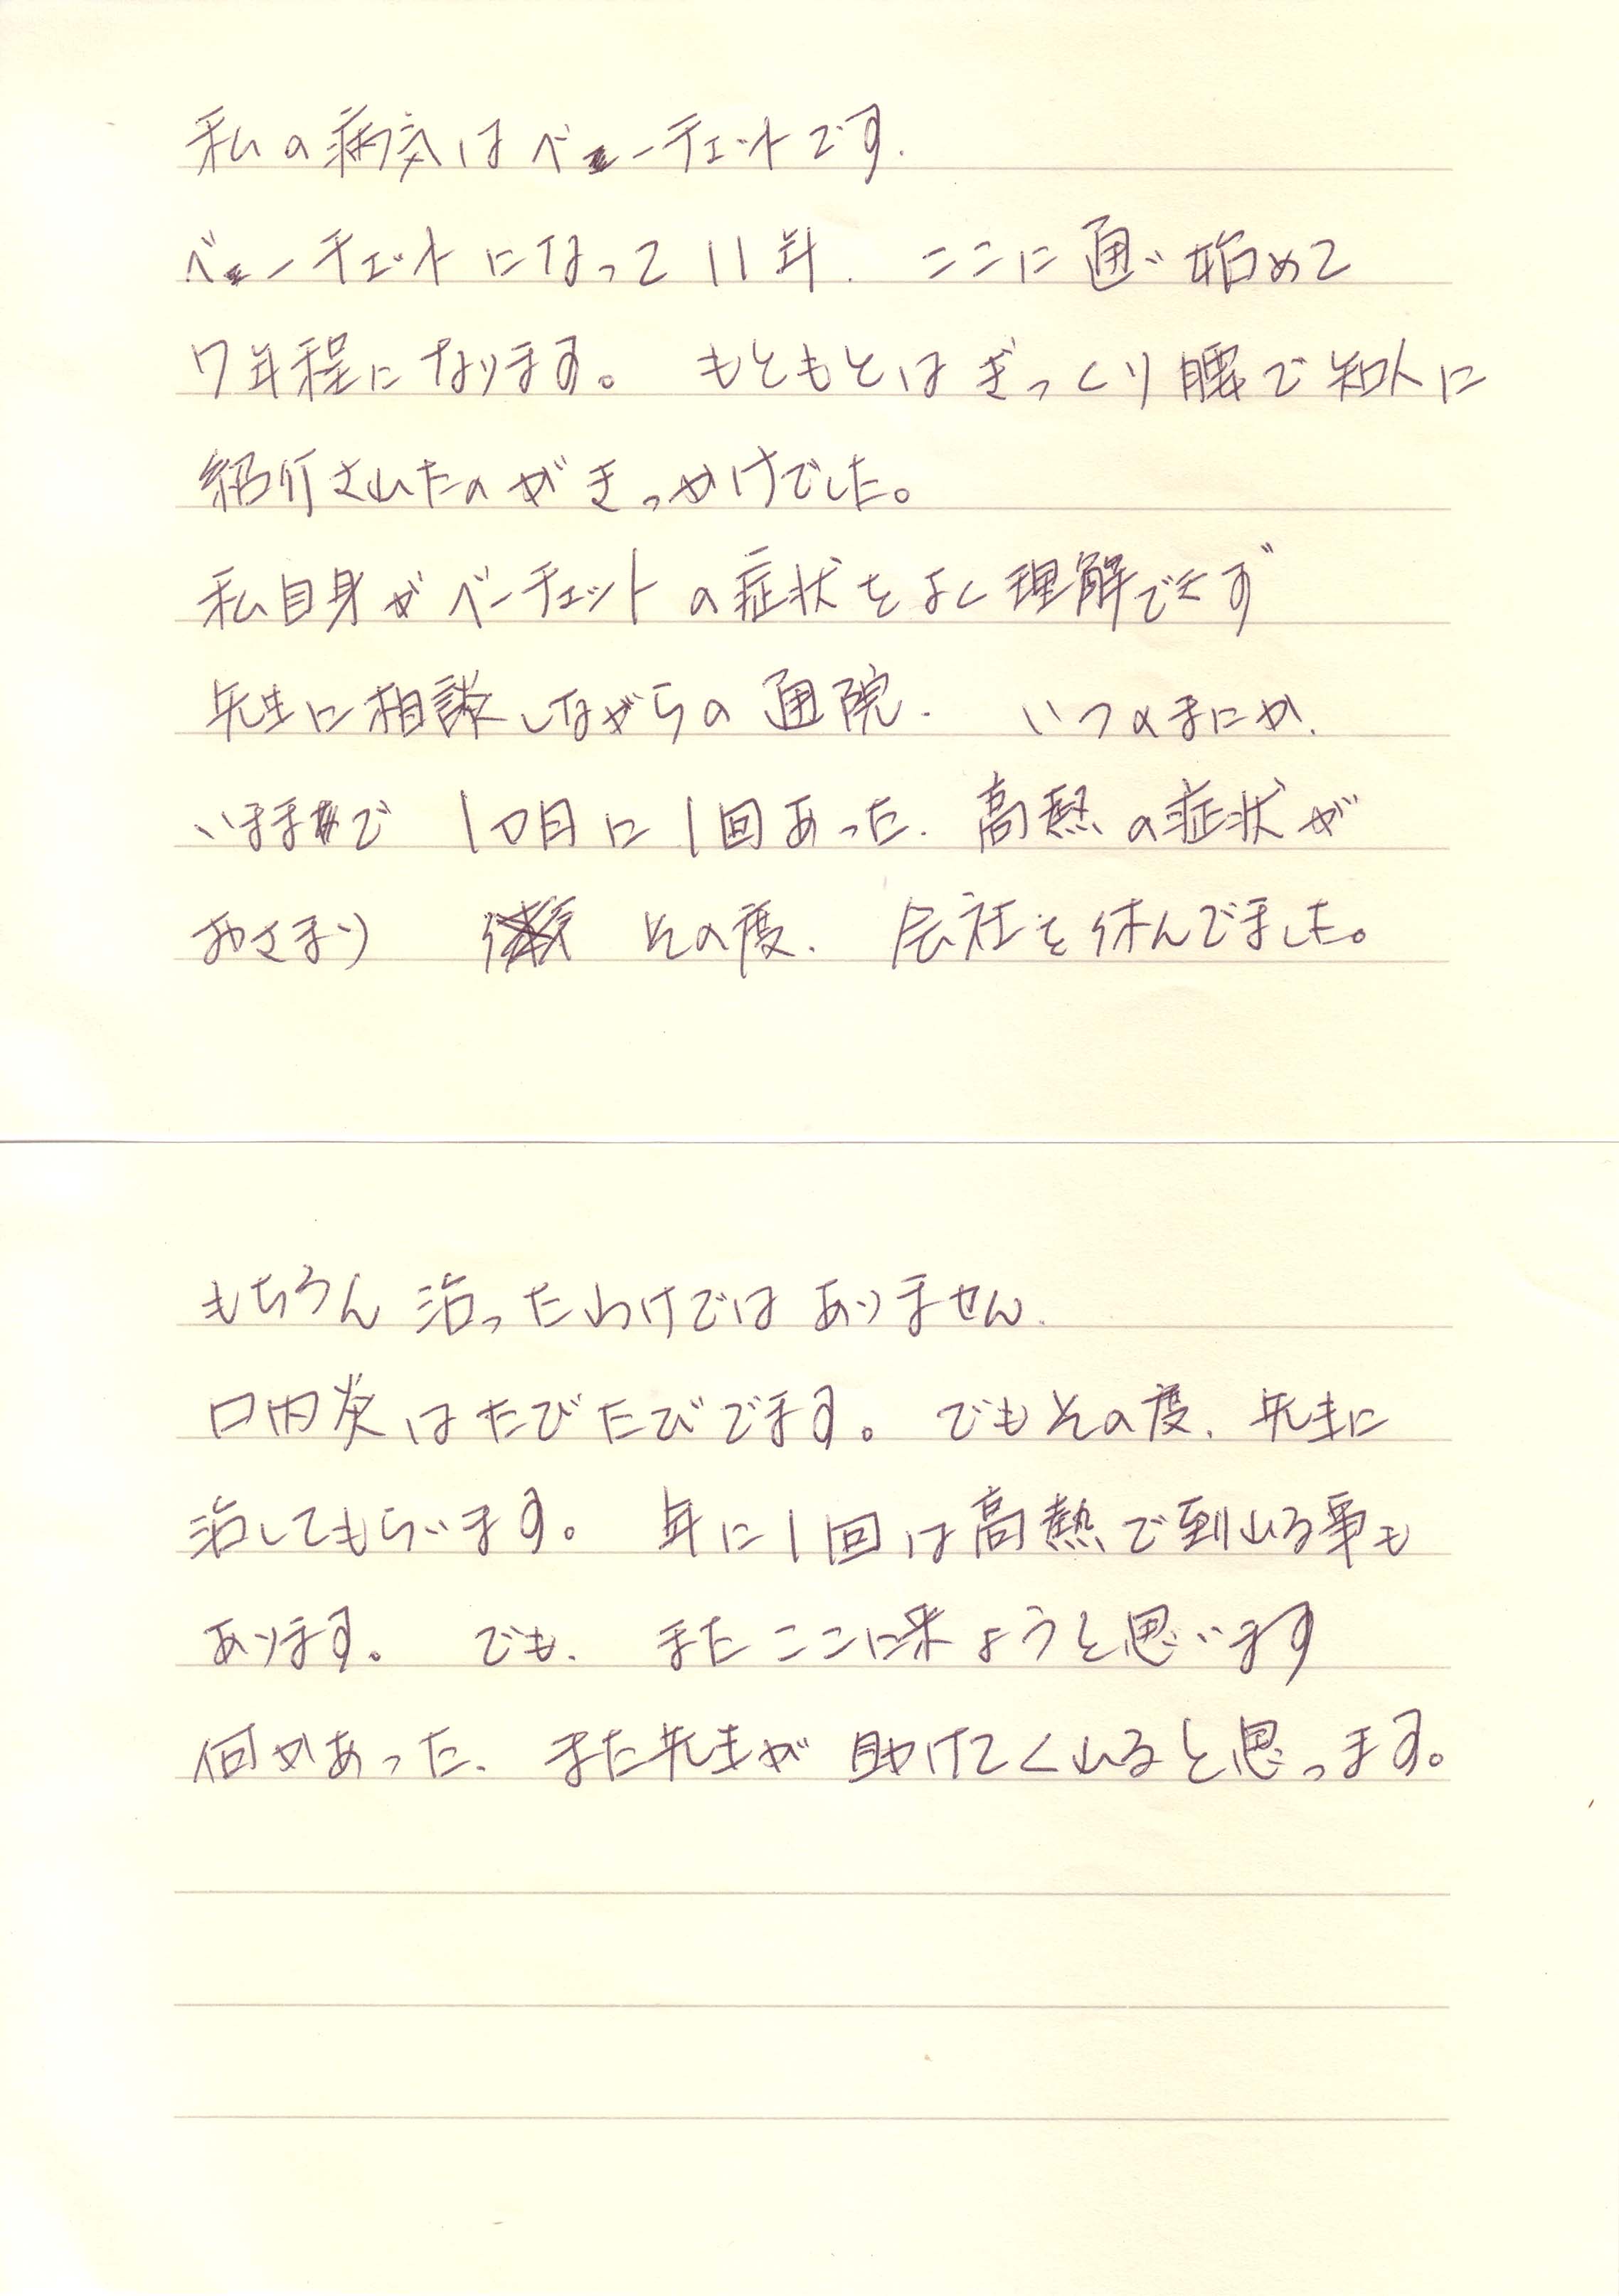 私の病気はベーチェットです.
ベーチェットになって11年. ここに通い始めて
7年程になります。 もともとはぎっくり腰で知人に
紹介されたのがきっかけでした。
私自身がベーチェットの症状をよく理解できず
先生に相談しながらの通院. いつのまにか.
いままで 1ヵ月に1回あった. 高熱の症状が
おさまり その度. 会社を休んでました。
もちろん治ったわけではありません.
口内炎はたびたびでます。でもその度. 先生に
治してもらいます。 年に1回は高熱で到れる事も
あります。 でも. またここに来ようと思います
何かあった. また先生が助けてくれると思っます。